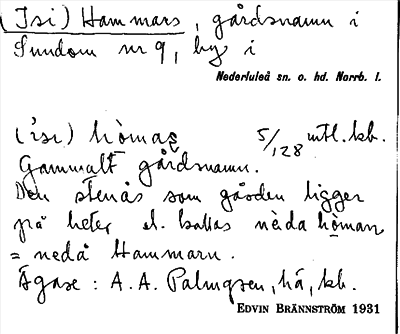 (Isi) Hammars, gårdsnamn i
Sundom nr 9, by i
Nederluleå sn. o. hd. Norrb. l.
(ìsı) hòmaṣ 5/128 mtl. kb.
Gammalt gårdsnamn.
Den stenås som gården ligger
på heter el. kallas nèda hòman
= nedå Hammarn.
Ägare: A. A. Palmqren, hä, kb.
EDVIN BRÄNNSTRÖM 1931